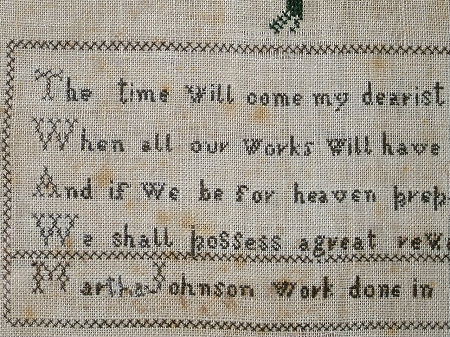 The time will come my dearist
When all our works will have
And if we be for heaven prep
We shall possess agreat rewa
Martha Johnson work done in